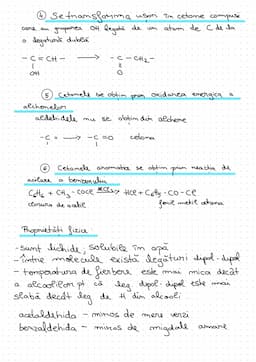 ④ Se transformă ușor în cetone compușii
care au gruparea OH legată de un atom de C de la
o legătură dublă
- C = CH - → - C - CH₂ -
OH O
⑤ Cetonele se obțin prin oxidarea energică a
alchenelor
aldehidele nu se obțin din alchene
- C = → - C = O cetona
⑥ Cetonele aromatice se obțin prin reacția de
acilare a benzenului
C₆H₆ + CH₃ - COCl → HCl + C₆H₅ - CO - Cl
clorura de acetil fenil metil cetona
Proprietăți fizice
- sunt lichide, solubile în apă
- între molecule există legături dipol-dipol
- temperatura de fierbere este mai mică decât
a alcoolilor pt că leg dipol-dipol este mai
slabă decât leg de H din alcooli.
acetaldehida - miros de mere verzi
benzaldehida - miros de migdale amare